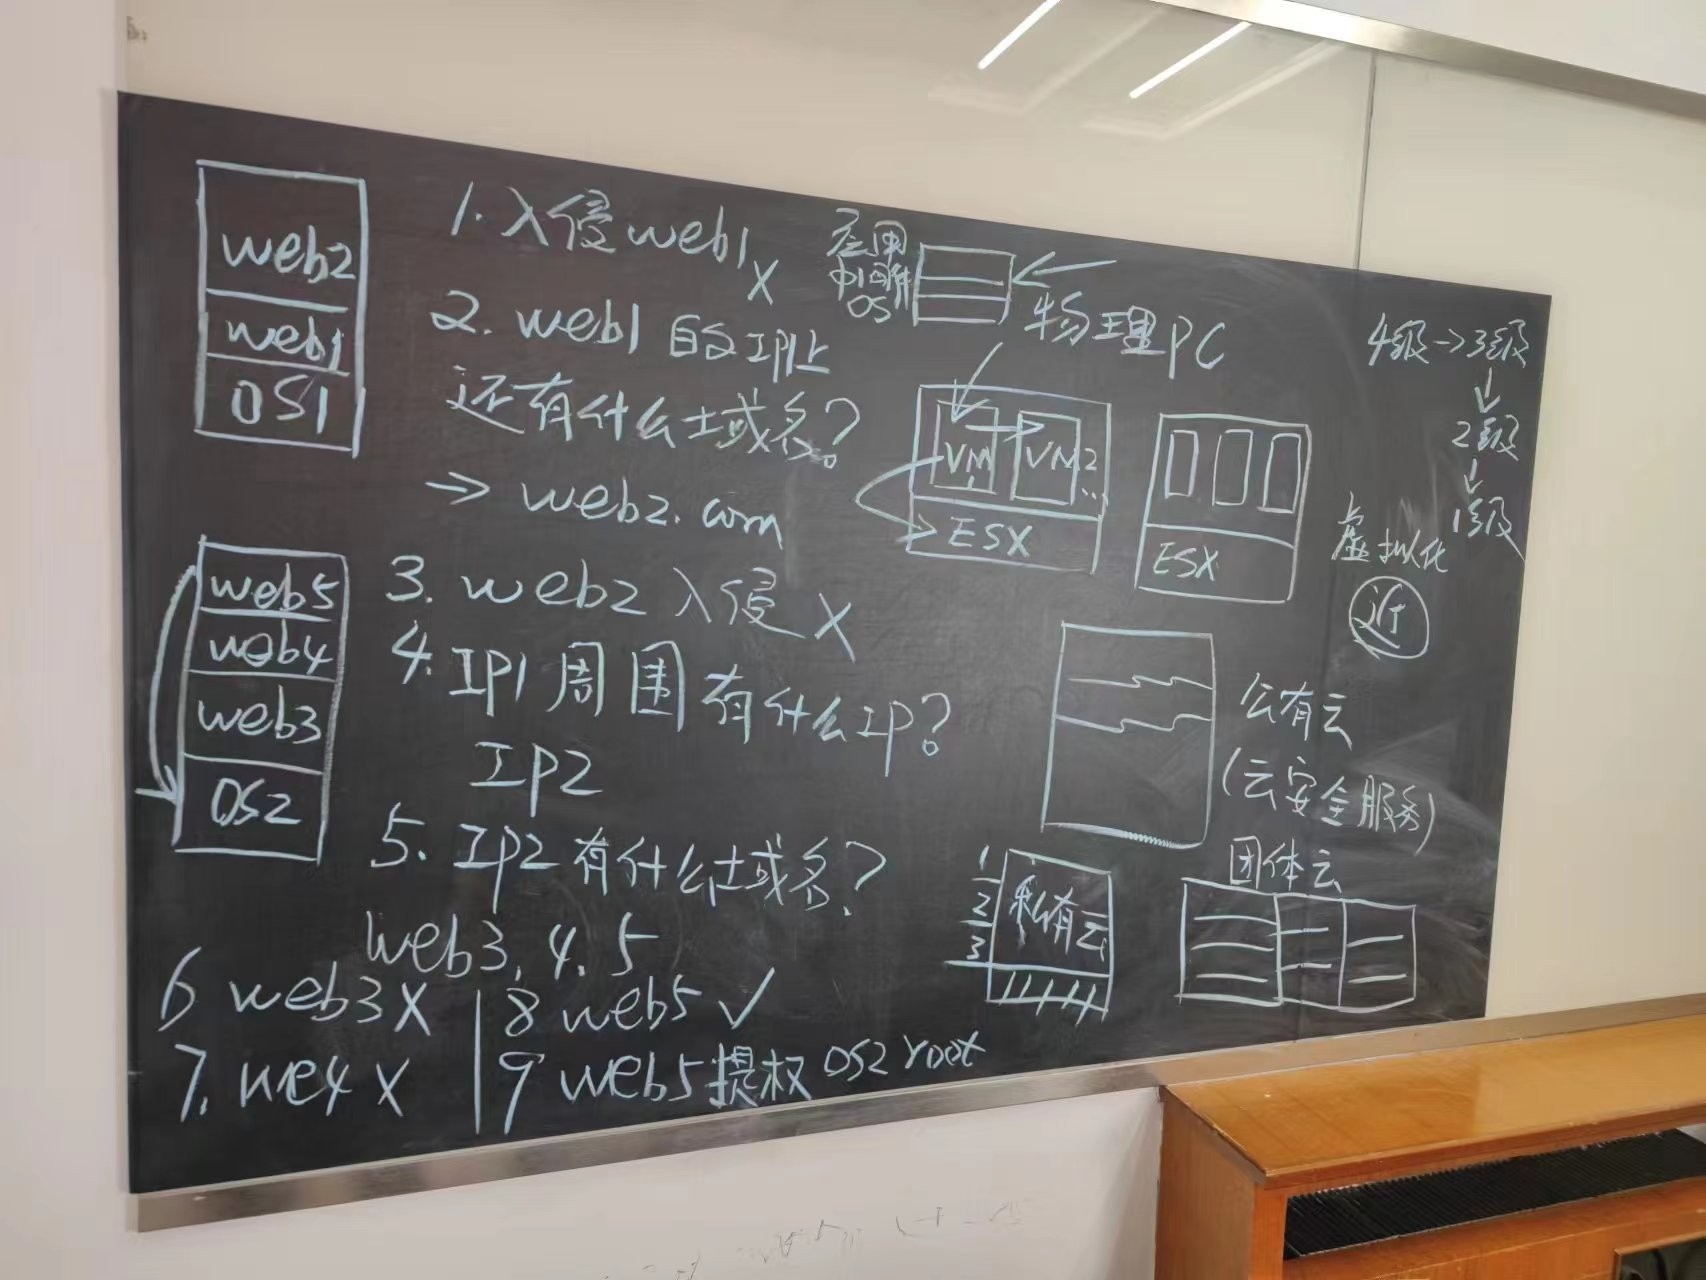 web2
web1
OS1
1. 入侵web1 X
2. web1 的IP址
还有什么域名?
→ web2.com
web5
web4
web3
OS2
3. web2 入侵 X
4. IP1周围有什么IP?
IP2
5. IP2有什么域名?
web3. 4. 5
6 web3 X
7. we4 X
8 web5 ✓
9 web5提权 OS2 root
应用
中间件
OS
物理PC
VM
VM2
ESX
ESX
4级→3级
2级
1级
虚拟化
近
公有云
(云安全服务)
团体云
1
2
3
私有云